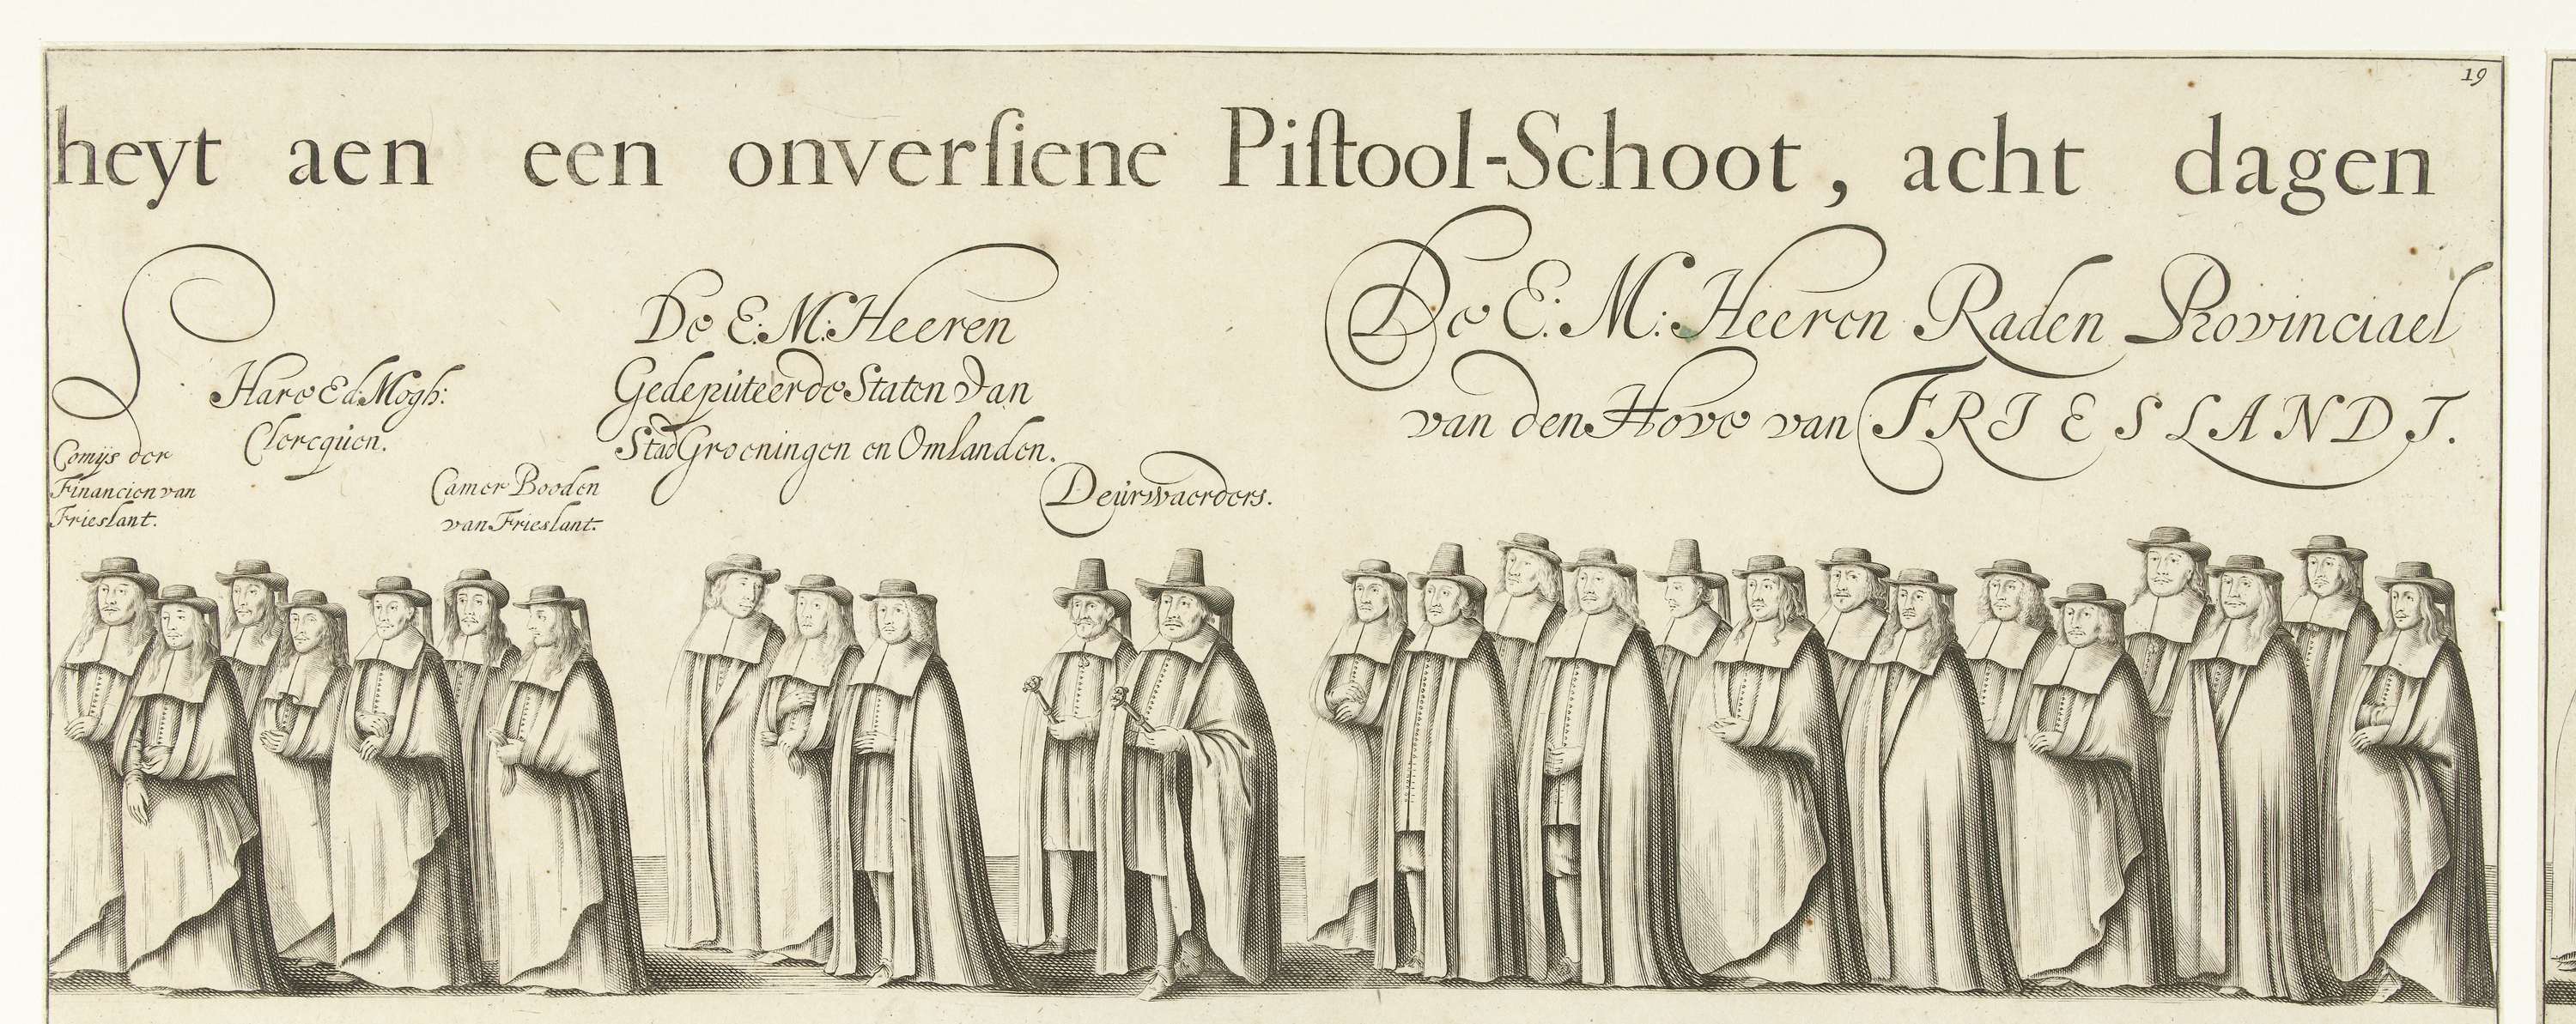 19
heyt aen een onverſiene Piſtool-Schoot, acht dagen
Comijs der
Financien van
Frieslant.
Hare Ed. Mogh:
Clercquen.
Camer Booden
van Frieslant.
De E: M: Heeren
Gedeputeerde Staten van
Stad Groeningen en Omlanden.
Deurwaerders.
De E: M: Heeren Raden Provinciael
van den Hove van FRIESLANDT.